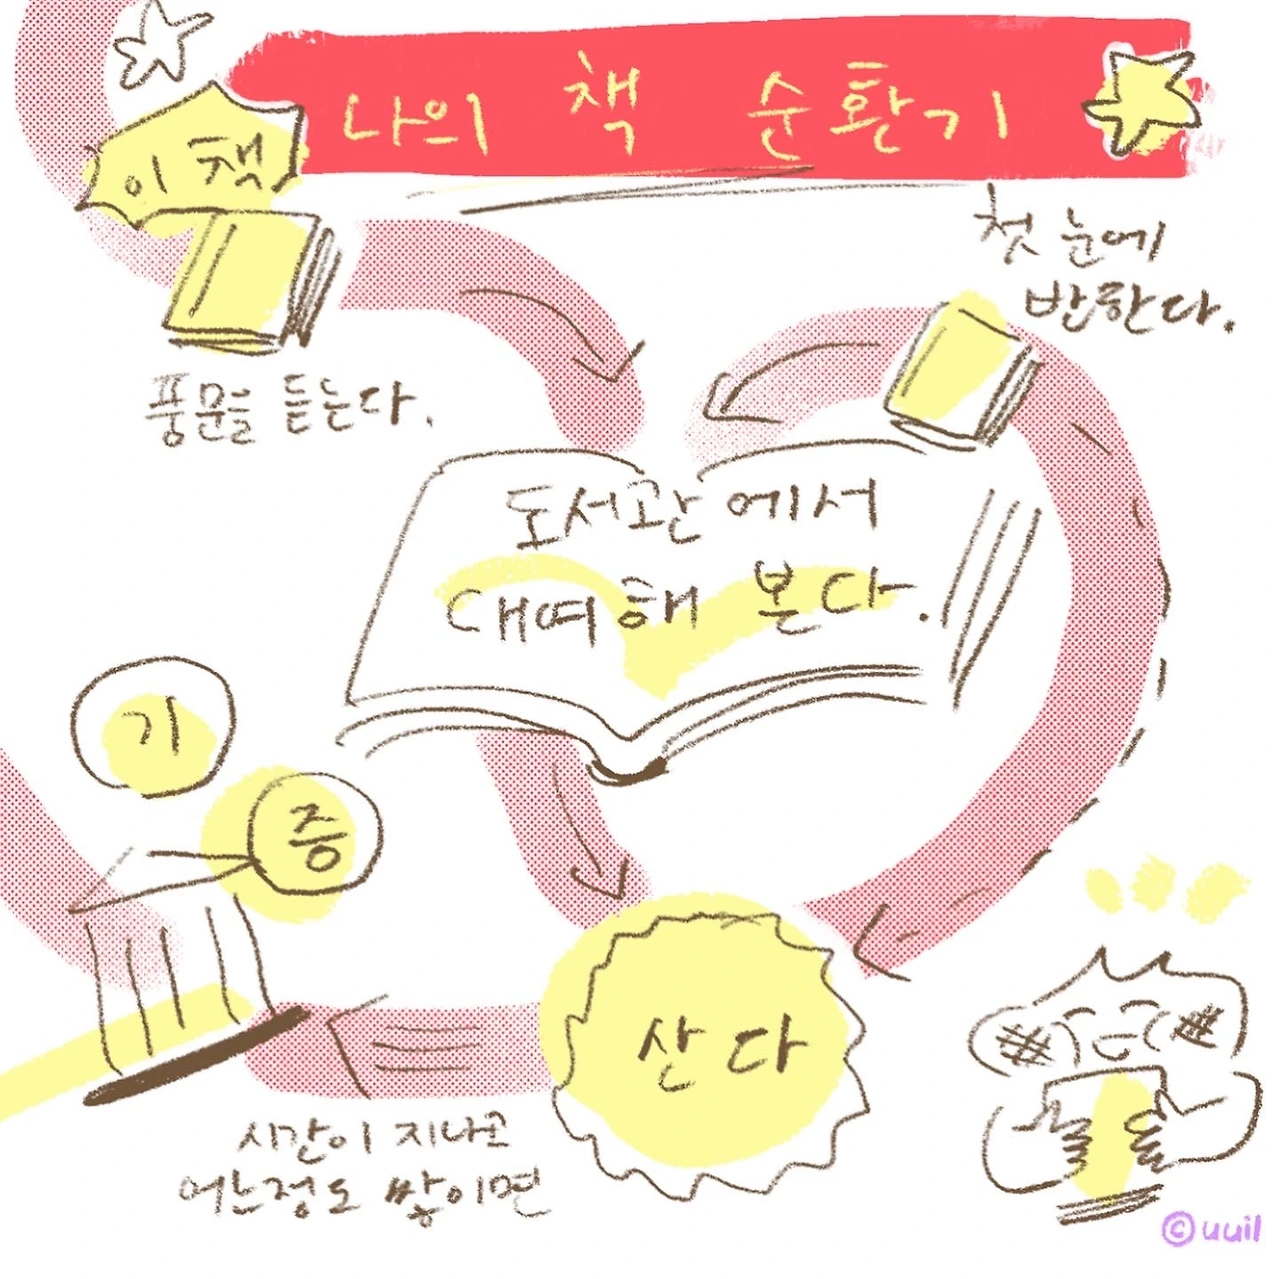 나의 책 순환기
이 책
풍문을 듣는다.
첫 눈에
반한다.
도서관에서
대여해 본다.
산다
시간이 지나고
어느정도 쌓이면
기
증
© uuil